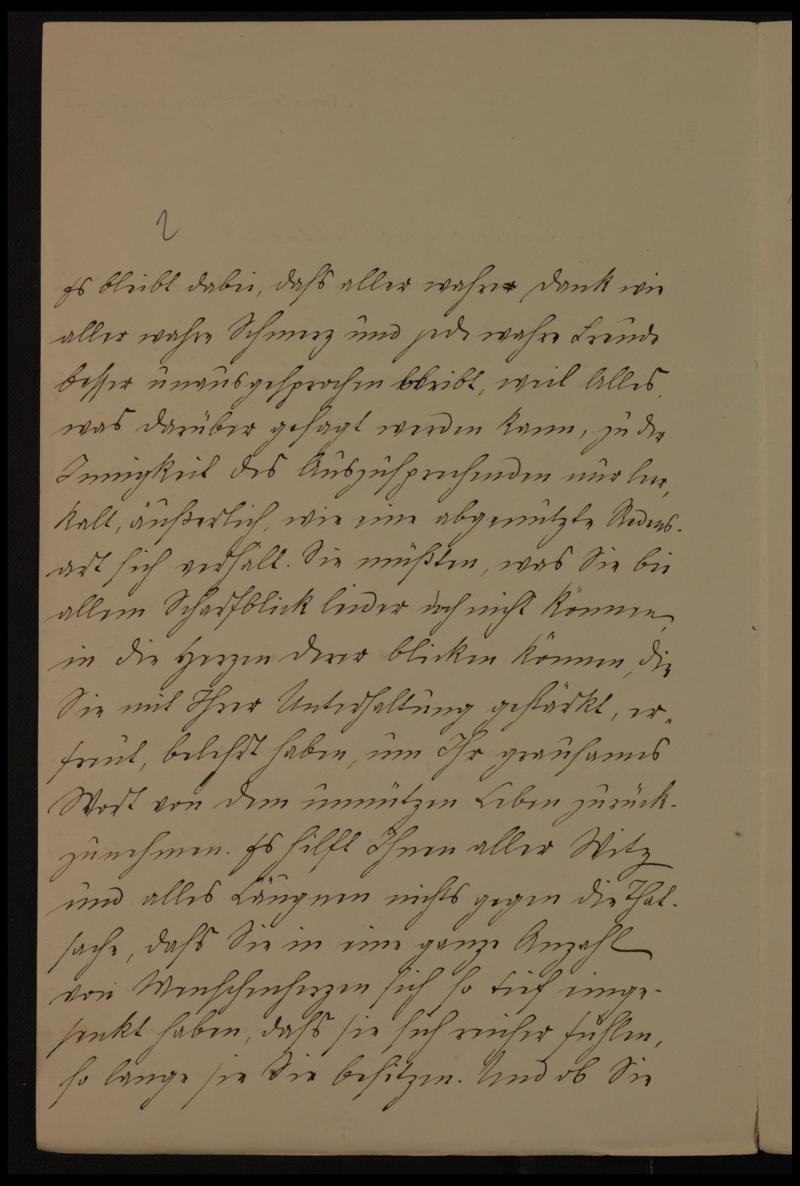 2
Es bleibt dabei, dass aller wahre Dank wie
aller wahre Schmerz und jede wahre Freude
besser unausgesprochen bleibt, weil Alles,
was darüber gesagt werden kann, zu der
Innigkeit des Auszusprechenden nur leer,
kalt, äußerlich, wie eine abgenützte Redens-
art sich verhält. Sie müßten, was Sie bei
allem Scharfblick leider doch nicht können,
in die Herzen derer blicken können, die
Sie mit Ihrer Unterhaltung gestärkt, er-
freut, belehrt haben, um Ihr grausames
Wort von dem unnützen Leben zurück-
zunehmen. Es hilft Ihnen aller Witz
und alles Läugnen nichts gegen die That-
sache, dass Sie in eine ganze Anzahl
von Menschenherzen sich so tief einge-
senkt haben, dass sie sich reicher fühlen,
so lange sie Sie besitzen. Und ob Sie